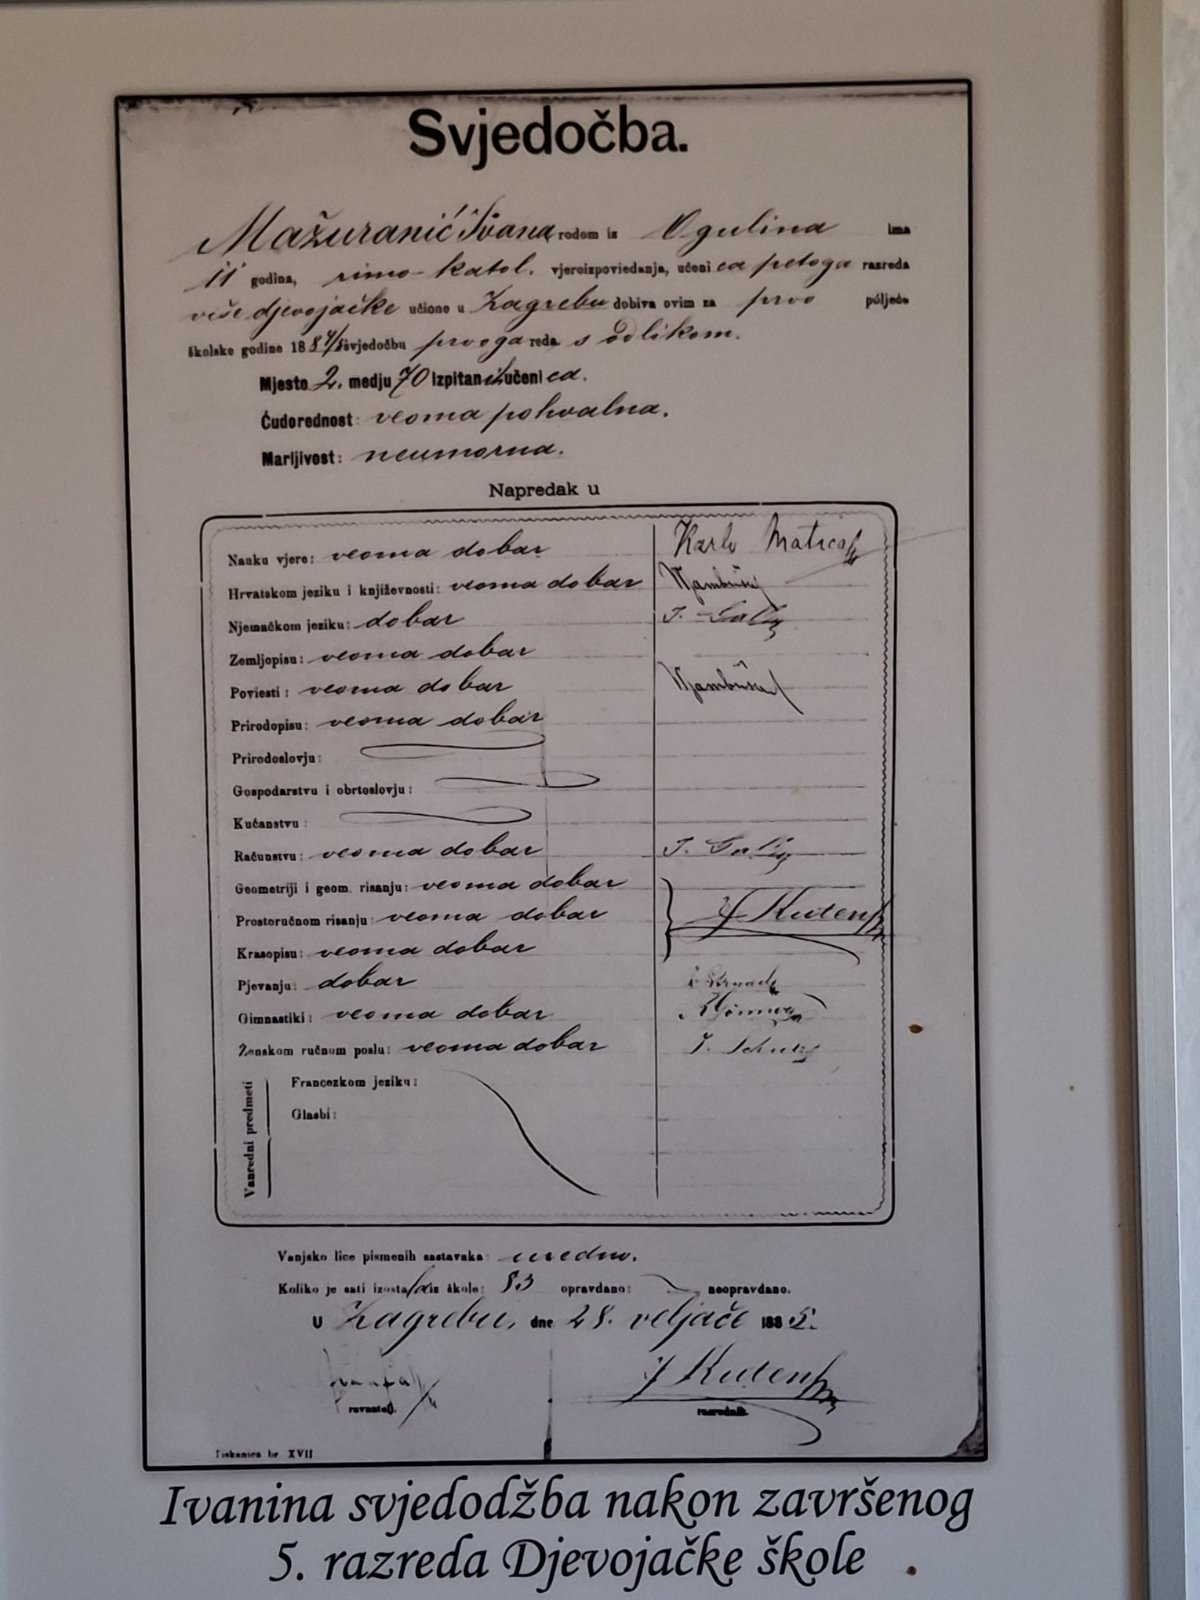 Svjedočba.
Mažuranić Ivana rodom iz Ogulina ima
11 godina, rimo-katol. vjeroizpoviedanja, učenica petoga razreda
više djevojačke učione u Zagrebu dobiva ovim za prvo poljeće
školske godine 1884/5 svjedočbu prvoga reda s odlikom.
Mjesto 2. medju 70 izpitanih učenica.
Ćudorednost: veoma pohvalna.
Marljivost: neumorna.
Napredak u
Nauku vjere: veoma dobar Karlo
Hrvatskom jeziku i književnosti: veoma dobar
Njemačkom jeziku: dobar
Zemljopisu: veoma dobar
Poviesti: veoma dobar
Prirodopisu: veoma dobar
Prirodoslovju:
Gospodarstvu i obrtoslovju:
Kućanstvu:
Računstvu: veoma dobar
Geometriji i geom. risanju: veoma dobar
Prostoručnom risanju: veoma dobar
Krasopisu: veoma dobar
Pjevanju: dobar
Gimnastiki: veoma dobar
Ženskom ručnom poslu: veoma dobar
Vanredni predmeti
Francezkom jeziku:
Glasbi:
Vanjsko lice pismenih sastavaka: uredno.
Koliko je sati izostala iz škole: 83 opravdano: neopravdano.
U Zagrebu, dne 28. veljače 1885.
ravnatelj. razrednik.
Tiskanica br. XVII
Ivanina svjedodžba nakon završenog
5. razreda Djevojačke škole